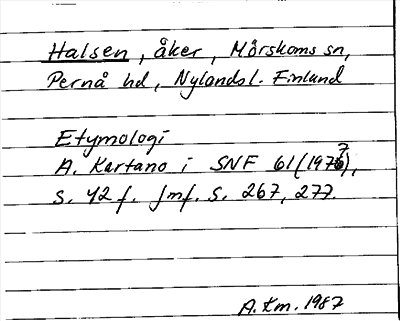 Halsen, åker, Mörskoms sn,
Pernå hd, Nylandsl. Finland
Etymologi
A. Kartano i SNF 61 (1977),
s. 42 f. Jmf. s. 267, 277.
A. Km. 1987